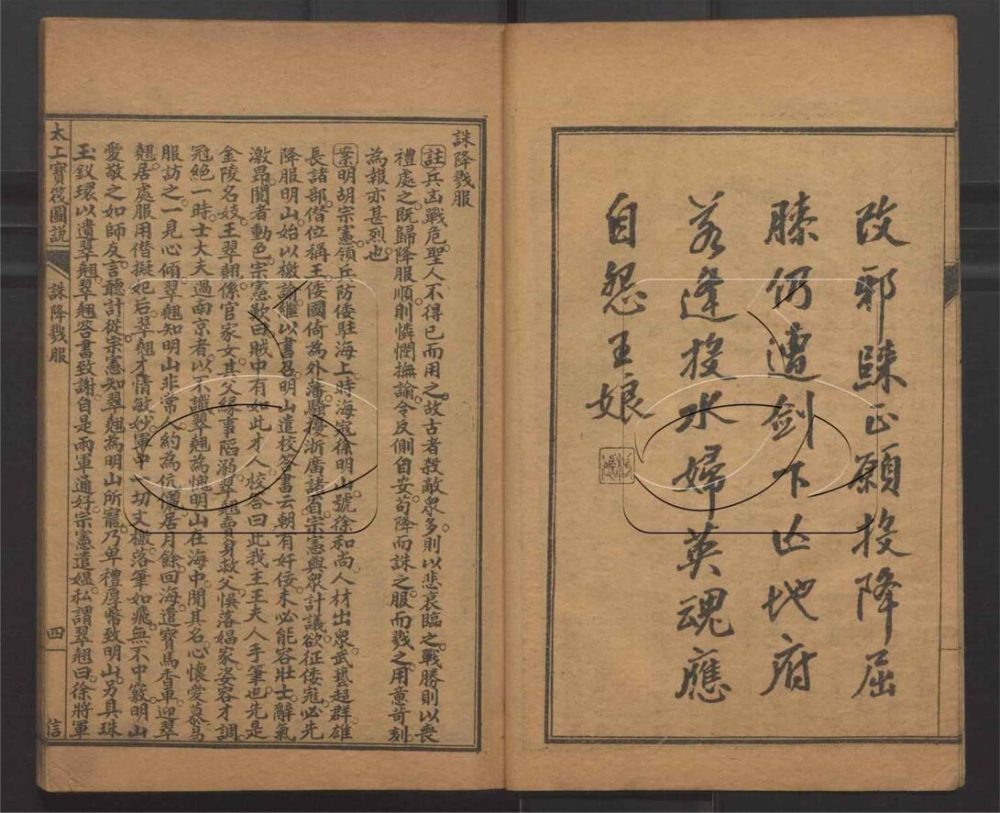 改邪歸正願投降屈
膝仍遭劍下亡地府
若逢投水婦英魂應
自怨王娘
誅降戮服
註兵凶戰危聖人不得已而用之故古者殺敵衆多則以悲哀臨之戰勝則以喪
禮處之既歸降服順則憐憫撫諭令反側自安苟降而誅之服而戮之用意苛刻
為報亦甚烈也
案明胡宗憲領兵防倭駐海上時海寇徐明山號徐和尚人材出衆武藝超群雄
長諸部僭位稱王倭國倚為外藩騷擾浙廣諸省宗憲與衆計議欲征倭寇必先
降服明山始以檄諭繼以書召明山遣校答書云朝有奸佞未必能容壯士辭氣
激昂閱者動色宗憲歎曰賊中有如此才人校答曰此我王王夫人手筆也先是
金陵名妓王翠翹係官家女其父緣事陷溺翠翹賣身救父悞落娼家姿容才調
冠絕一時士大夫過南京者以不識翠翹為愧明山在海中聞其名心懷愛慕易
服訪之一見心傾翠翹知明山非常人約為伉儷居月餘回海遣寶馬香車迎翠
翹居處服用僭擬妃后翠翹才情敏妙軍中一切文檄落筆如飛無不中竅明山
愛敬之如師友言聽計從宗憲知翠翹為明山所寵乃卑禮厚幣致明山另具珠
玉釵環以遺翠翹翠翹答書致謝自是兩軍通好宗憲遣媪私謂翠翹曰徐將軍
太上寶筏圖說
誅降戮服
四
信